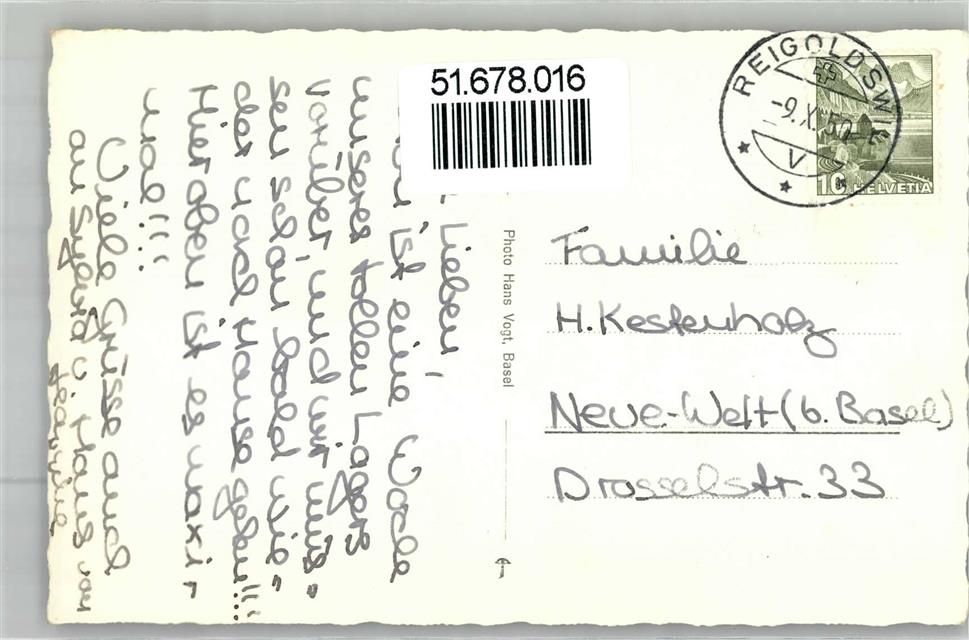 51.678.016
REIGOLDSWIL
-9.X.50-
V
10 HELVETIA
Photo Hans Vogt, Basel
Familie
H. Kestenholz
Neue-Welt (b. Basel)
Drosselstr. 33
Lieben,
ist eine Woche
unseres tollen Lagers
vorüber, und wir müs=
sen schon bald wie=
der nach Hause gehen!!!!
Hier oben ist es maxi-
mal!!!
Viele Grüsse auch
an Sylvia u. Hans von
Jeannine